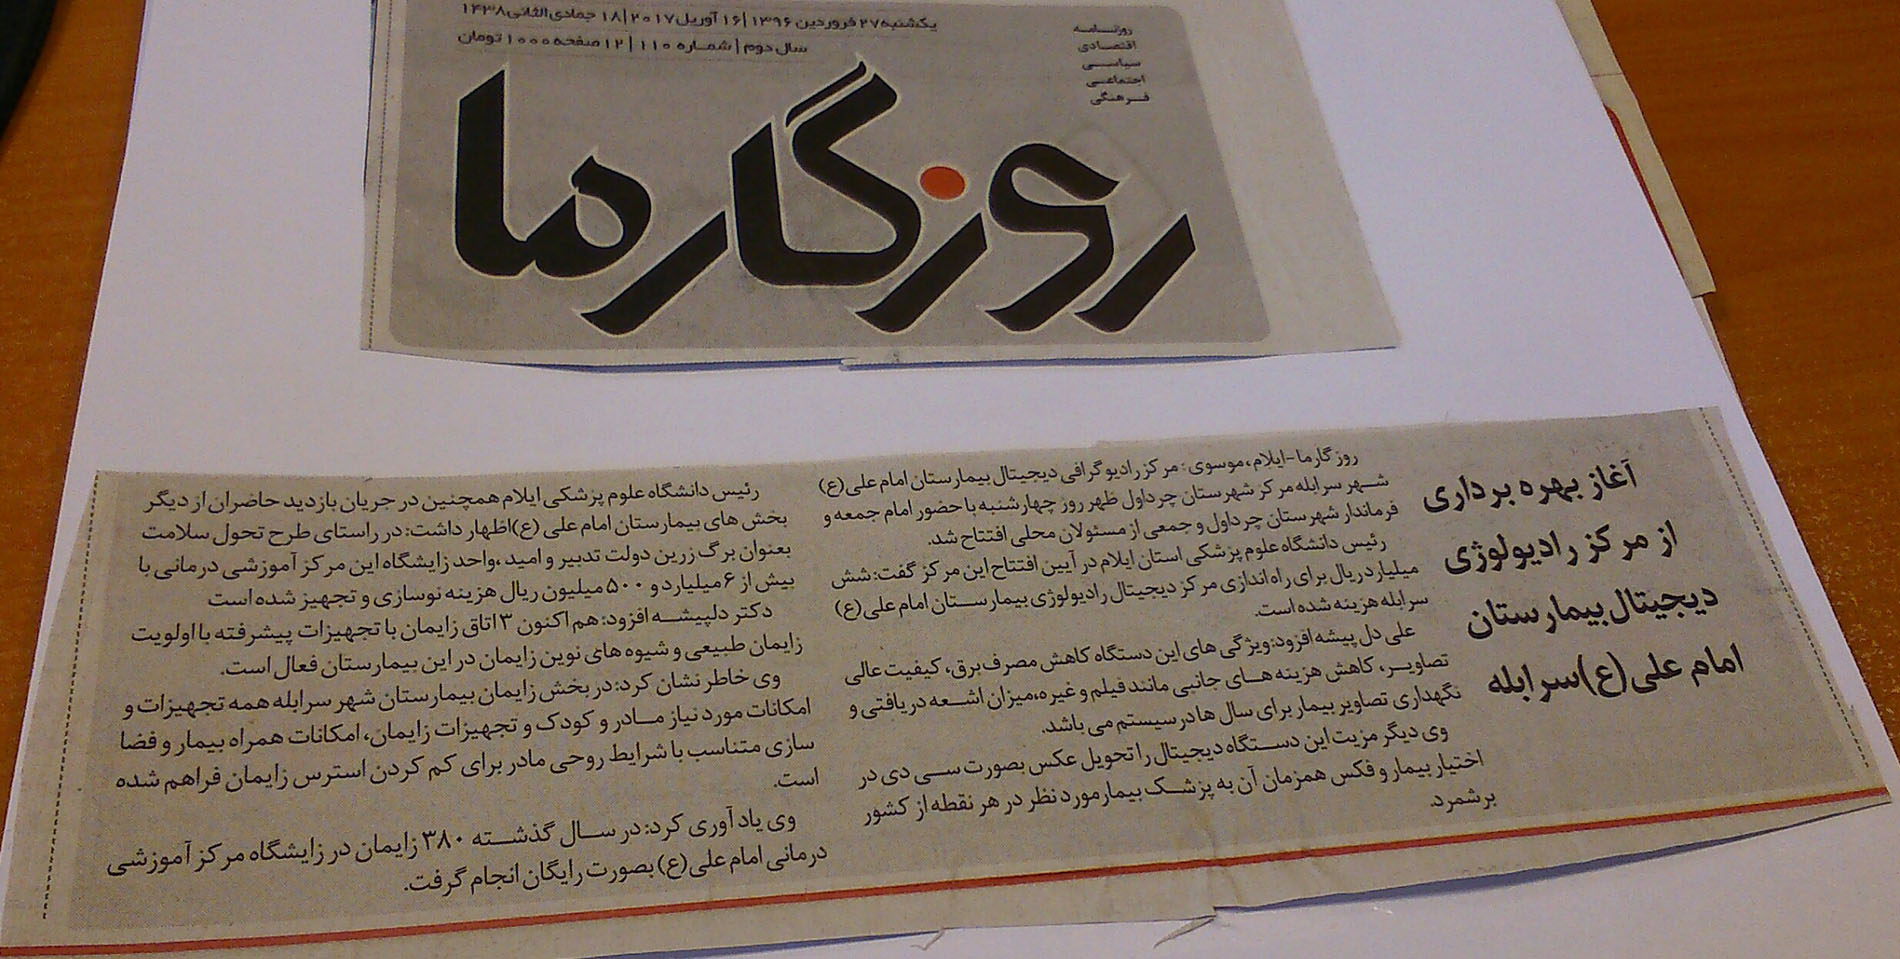 یکشنبه ۲۷ فروردین ۱۳۹۶ | ۱۶ آوریل ۲۰۱۷ | ۱۸ جمادی الثانی ۱۴۳۸
سال دوم | شماره ۱۱۰ | ۱۲ صفحه ۱۰۰۰ تومان
روزنامه
اقتصادی
سیاسی
اجتماعی
فرهنگی
روزگار ما
آغاز بهره برداری
از مرکز رادیولوژی
دیجیتال بیمارستان
امام علی (ع) سرابله
روزگارما-ایلام، موسوی: مرکز رادیوگرافی دیجیتال بیمارستان امام علی (ع)
شهر سرابله مرکز شهرستان چرداول ظهر روز چهارشنبه با حضور امام جمعه و
فرماندار شهرستان چرداول و جمعی از مسئولان محلی افتتاح شد.
رئیس دانشگاه علوم پزشکی استان ایلام در آیین افتتاح این مرکز گفت: شش
میلیارد ریال برای راه اندازی مرکز دیجیتال رادیولوژی بیمارستان امام علی (ع)
سرابله هزینه شده است.
علی دل پیشه افزود: ویژگی های این دستگاه کاهش مصرف برق، کیفیت عالی
تصاویر، کاهش هزینه های جانبی مانند فیلم و غیره، میزان اشعه دریافتی و
نگهداری تصاویر بیمار برای سال ها در سیستم می باشد.
وی دیگر مزیت این دستگاه دیجیتال را تحویل عکس بصورت سی دی در
اختیار بیمار و فکس همزمان آن به پزشک بیمار مورد نظر در هر نقطه از کشور
برشمرد.
رئیس دانشگاه علوم پزشکی ایلام همچنین در جریان بازدید حاضران از دیگر
بخش های بیمارستان امام علی (ع) اظهار داشت: در راستای طرح تحول سلامت
بعنوان برگ زرین دولت تدبیر و امید، واحد زایشگاه این مرکز آموزشی درمانی با
بیش از ۶ میلیارد و ۵۰۰ میلیون ریال هزینه نوسازی و تجهیز شده است
دکتر دلپیشه افزود: هم اکنون ۳ اتاق زایمان با تجهیزات پیشرفته با اولویت
زایمان طبیعی و شیوه های نوین زایمان در این بیمارستان فعال است.
وی خاطر نشان کرد: در بخش زایمان بیمارستان شهر سرابله همه تجهیزات و
امکانات مورد نیاز مادر و کودک و تجهیزات زایمان، امکانات همراه بیمار و فضا
سازی متناسب با شرایط روحی مادر برای کم کردن استرس زایمان فراهم شده
است.
وی یادآوری کرد: در سال گذشته ۳۸۰ زایمان در زایشگاه مرکز آموزشی
درمانی امام علی (ع) بصورت رایگان انجام گرفت.